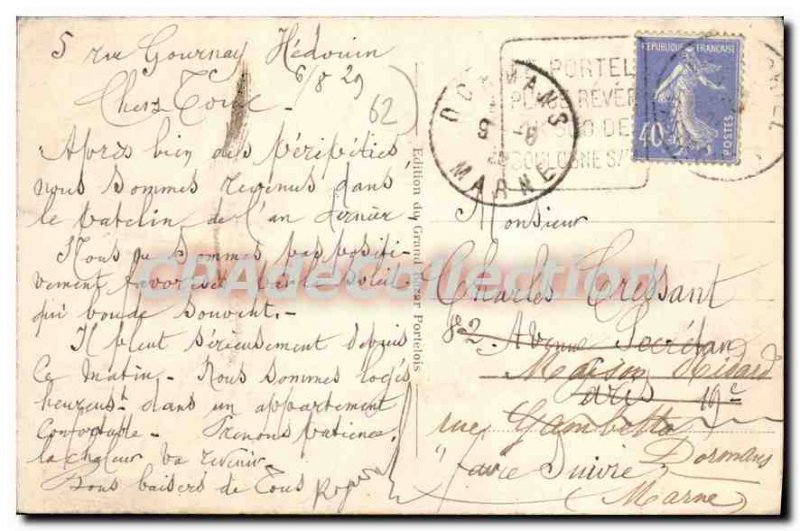 5 rue Gournay Hédouin
6/8 29
Chers Tous
62
Après bien des péripéties
nous sommes revenus dans
le patelin de l'an dernier
Nous ne sommes pas positi-
vement favorisés par le soleil
qui boude souvent.-
Il pleut sérieusement depuis
ce matin - Nous sommes logés
heureust dans un appartement
confortable - Prenons patience
la chaleur va revenir
Bons baisers de Tous Roger
Edition du Grand Bazar Portelois
DORMANS
MARNE
LE PORTEL
PLAGE RÊVÉE
SUD DE
BOULOGNE S/
REPUBLIQUE FRANÇAISE
40c
POSTES
Monsieur
Charles Tressant
82 Avenue Secrétan
Maison
Paris 19e
rue Gambetta
Dormans
faire Suivre
(Marne)
CPAdecollection.com